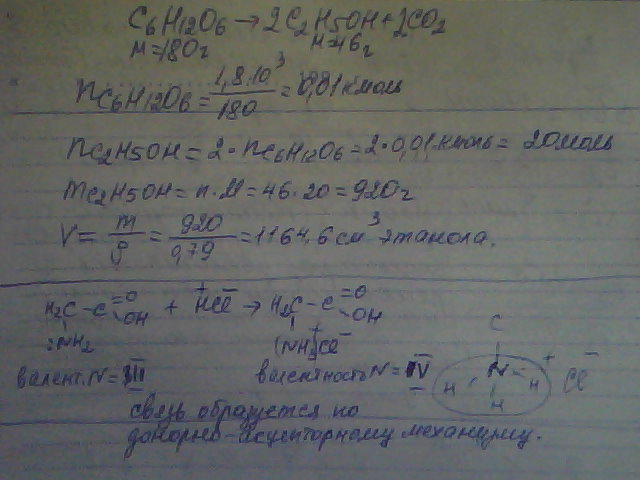 C₆H₁₂O₆ → 2C₂H₅OH + 2CO₂
M=180г M=46г
nC₆H₁₂O₆ = 1,8·10³/180 = 0,01 кмоль
nC₂H₅OH = 2·nC₆H₁₂O₆ = 2·0,01 кмоль = 20 моль
mC₂H₅OH = n·M = 46·20 = 920г
V = m/ρ = 920/0,79 = 1164,6 см³ этанола.
H₂C – C =O OH + HCl → H₂C – C =O OH
:NH₂ (NH₃)⁺Cl⁻
валент. N = III валентность N = IV
C
N⁺ H H H Cl⁻
связь образуется по
донорно-акцепторному механизму.